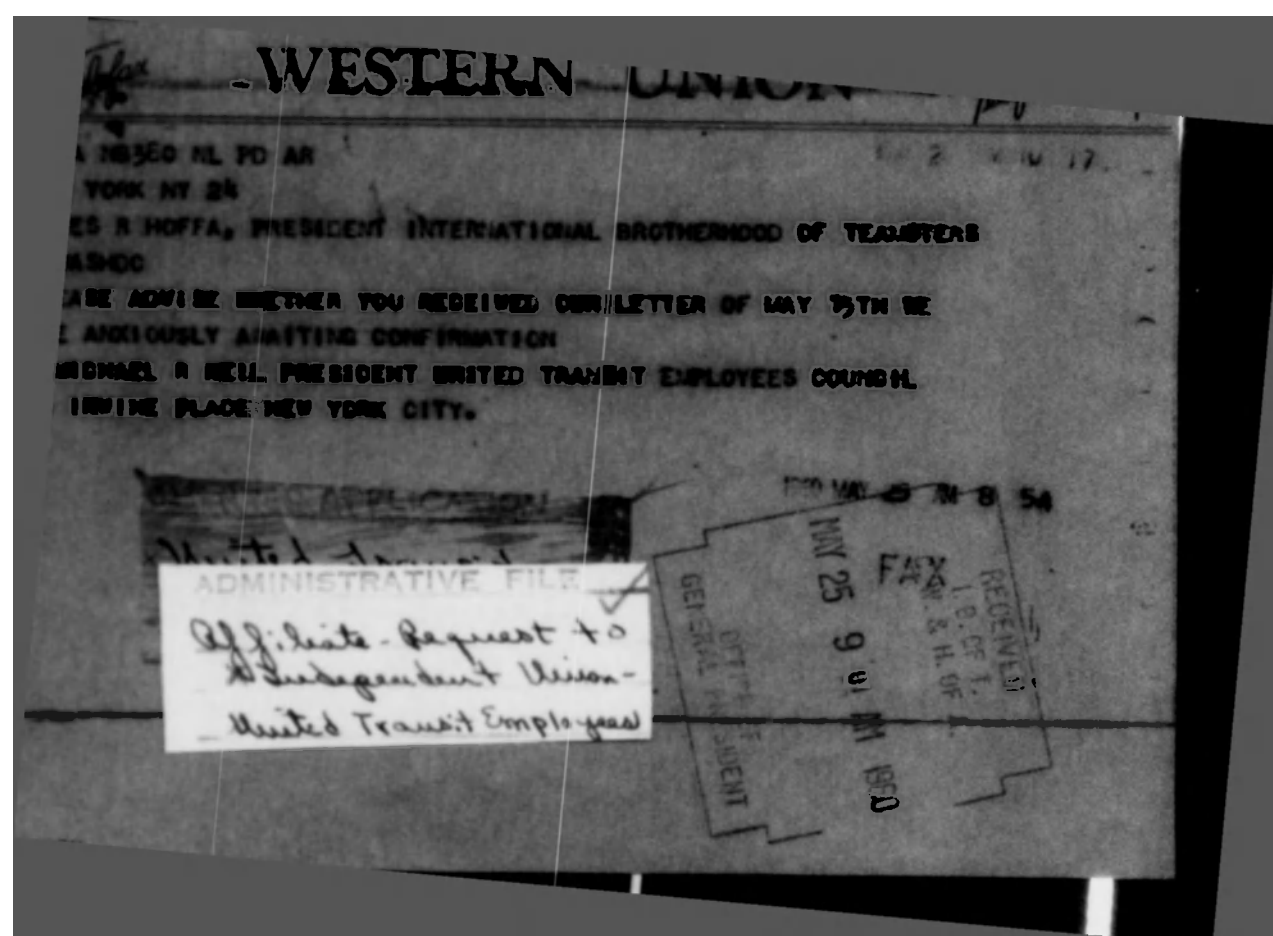 WESTERN UNION
NB380 NL PD AR
YORK NY 24
ES R HOFFA, PRESIDENT INTERNATIONAL BROTHERHOOD OF TEAMSTERS
ASHDC
EASE ADVISE WHETHER YOU RECEIVED OUR LETTER OF MAY 13TH WE
E ANXIOUSLY AWAITING CONFIRMATION
MICHAEL R NEIL PRESIDENT UNITED TRANSIT EMPLOYEES COUNCIL
IRVING PLACE NEW YORK CITY.
APPLICATION
United Transit
ADMINISTRATIVE FILE
Affiliate - Request to
Independent Union -
United Transit Employees
1960 MAY 25 AM 8 54
FAX
MAY 25 9 01 AM 1960
RECEIVED
I. B. OF T.
W. & H. OF
OFFICE OF
GENERAL PRESIDENT